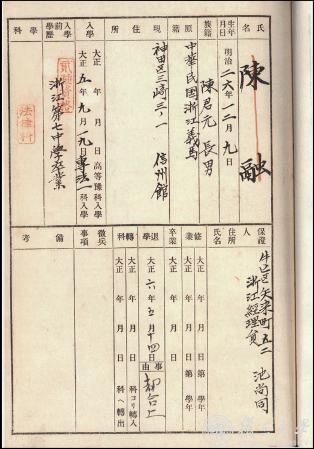 氏名
陳融
生年月日
明治二六年一二月九日
族籍
陳君元長男
原籍
中華民国浙江義烏
現住所
神田区三崎三ノ一 信州館
入学
大正 年 月 日高等豫科入学
大正五年九月一九日専法科入学
入学前学歴
浙江第七中學卒業
学科
法律科
保證人
住所
氏名
牛込区矢来町五二
浙江経理員
池尚同
修業
大正 年 月 日第 学年
大正 年 月 日第 学年
卒業
大正 年 月 日
退学
大正六年五月十四日
事由
都合上
轉科
大正 年 月 日 科ヨリ轉入
大正 年 月 日 科へ轉出
徴兵事項
備考